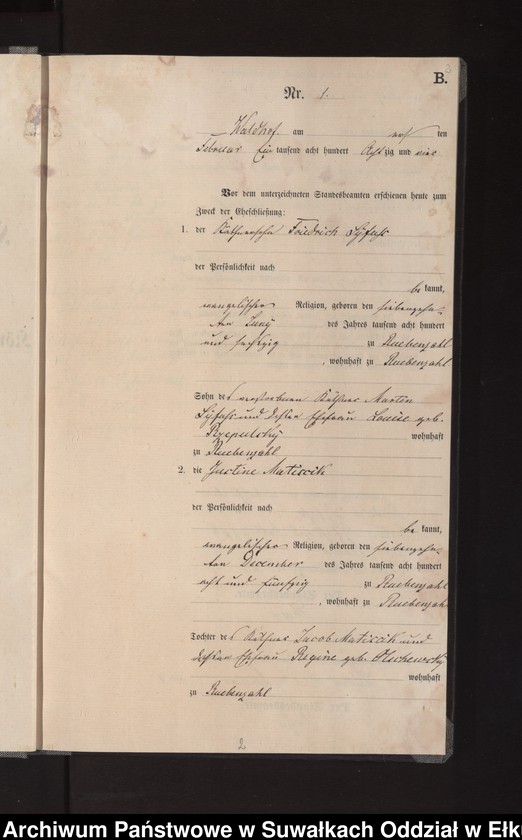 B.
Nr. 1.
Waldhof am ten
Februar Ein tausend acht hundert Achtzig und eins
Vor dem unterzeichneten Standesbeamten erschienen heute zum
Zweck der Eheschließung:
1. der Käthnersohn Friedrich
der Persönlichkeit nach
be kannt,
evangelischer Religion, geboren den siebenzehn-
ten Juny des Jahres tausend acht hundert
und sechszig zu Ruebenzahl
, wohnhaft zu Ruebenzahl
Sohn des verstorbenen Käthner Martin
und dessen Ehefrau Louise geb.
Rzepulsky wohnhaft
zu Ruebenzahl
2. die Justine Matiszik
der Persönlichkeit nach
be kannt,
evangelischer Religion, geboren den siebenzehn-
ten December des Jahres tausend acht hundert
acht und fünfzig zu Ruebenzahl
, wohnhaft zu Ruebenzahl
Tochter des Käthner Jacob Matiszik und
dessen Ehefrau Regine geb.
wohnhaft
zu Ruebenzahl
2
Archiwum Państwowe w Suwałkach Oddział w Ełk